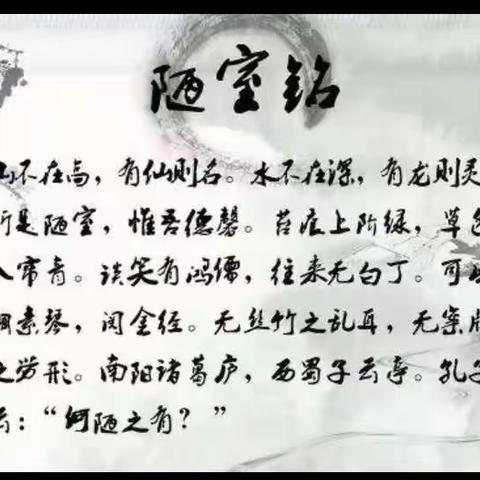 陋室铭
山不在高，有仙则名。水不在深，有龙则灵
斯是陋室，惟吾德馨。苔痕上阶绿，草色
入帘青。谈笑有鸿儒，往来无白丁。可以
调素琴，阅金经。无丝竹之乱耳，无案牍
之劳形。南阳诸葛庐，西蜀子云亭。孔子
云：“何陋之有？”